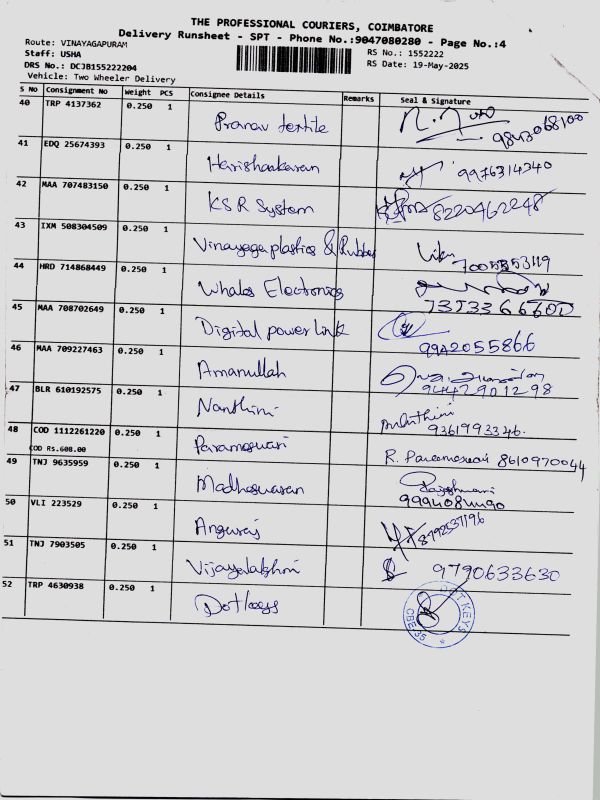 THE PROFESSIONAL COURIERS, COIMBATORE
Delivery Runsheet - SPT - Phone No.:9047080280 - Page No.:4
Route: VINAYAGAPURAM RS No.: 1552222
Staff: USHA RS Date: 19-May-2025
DRS No.: DCJB155222204
Vehicle: Two Wheeler Delivery
S No Consignment No Weight PCS Consignee Details Remarks Seal & Signature
40 TRP 4137362 0.250 1 Pranav textile 9843068100
41 EDQ 25674393 0.250 1 Harishankaran 9976314340
42 MAA 707483150 0.250 1 KSR System 8220462248
43 IXM 508304509 0.250 1 Vinayaga plastics & Rubber 7005553119
44 HRD 714868449 0.250 1 Whales Electronics
45 MAA 708702649 0.250 1 Digital power link 9942055866
46 MAA 709227463 0.250 1 Amanullah 9442901298
47 BLR 610192575 0.250 1 Nanthini 9361993346.
48 COD 1112261220 0.250 1 Parameswari R. Parameswari 8610970044
COD Rs.608.00
49 TNJ 9635959 0.250 1 Madheswaran Rajeshwari
50 VLI 223529 0.250 1 Anguraj
51 TNJ 7903505 0.250 1 Vijayalakshmi 9790633630
52 TRP 4630938 0.250 1 Dotkeys
DOT KEYS
CBE-35